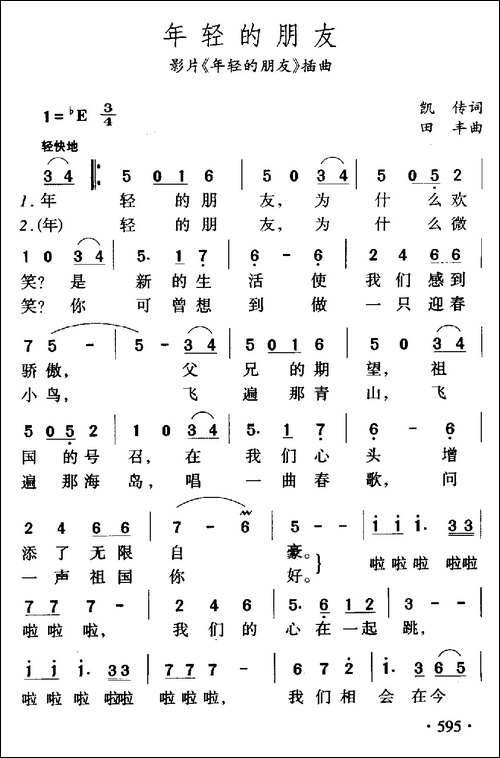 年轻的朋友
影片《年轻的朋友》插曲
1=♭E 3/4
凯 传词
田 丰曲
轻快地
3 4 ‖: 5 0 1 6 | 5 0 3 4 | 5 0 5 2 |
1.年 轻 的 朋 友, 为 什 么 欢
2.(年) 轻 的 朋 友, 为 什 么 微
1 0 3 4 | 5. 1 7 | 6 - 6 | 2 4 6 6 |
笑? 是 新 的 生 活 使 我 们 感 到
笑? 你 可 曾 想 到 做 一 只 迎 春
7 5 - | 5 - 3 4 | 5 0 1 6 | 5 0 3 4 |
骄 傲, 父 兄 的 期 望, 祖
小 鸟, 飞 遍 那 青 山, 飞
5 0 5 2 | 1 0 3 4 | 5. 1 7 | 6 - 6 |
国 的 号 召, 在 我 们 心 头 增
遍 那 海 岛, 唱 一 曲 春 歌, 问
2 4 6 6 | 7 - 6 | 5 - - | i i i. 3 3 |
添 了 无 限 自 豪。 啦 啦 啦 啦啦
一 声 祖 国 你 好。
7 7 7 - | 2 4 6 | 5. 6 1 2 | 3 - - |
啦 啦 啦, 我 们 的 心 在 一 起 跳,
i i i. 3 3 | 7 7 7 - | 6 7 2 | i. 3 6 5 |
啦 啦 啦 啦啦 啦 啦 啦, 我 们 相 会 在 今
·595·